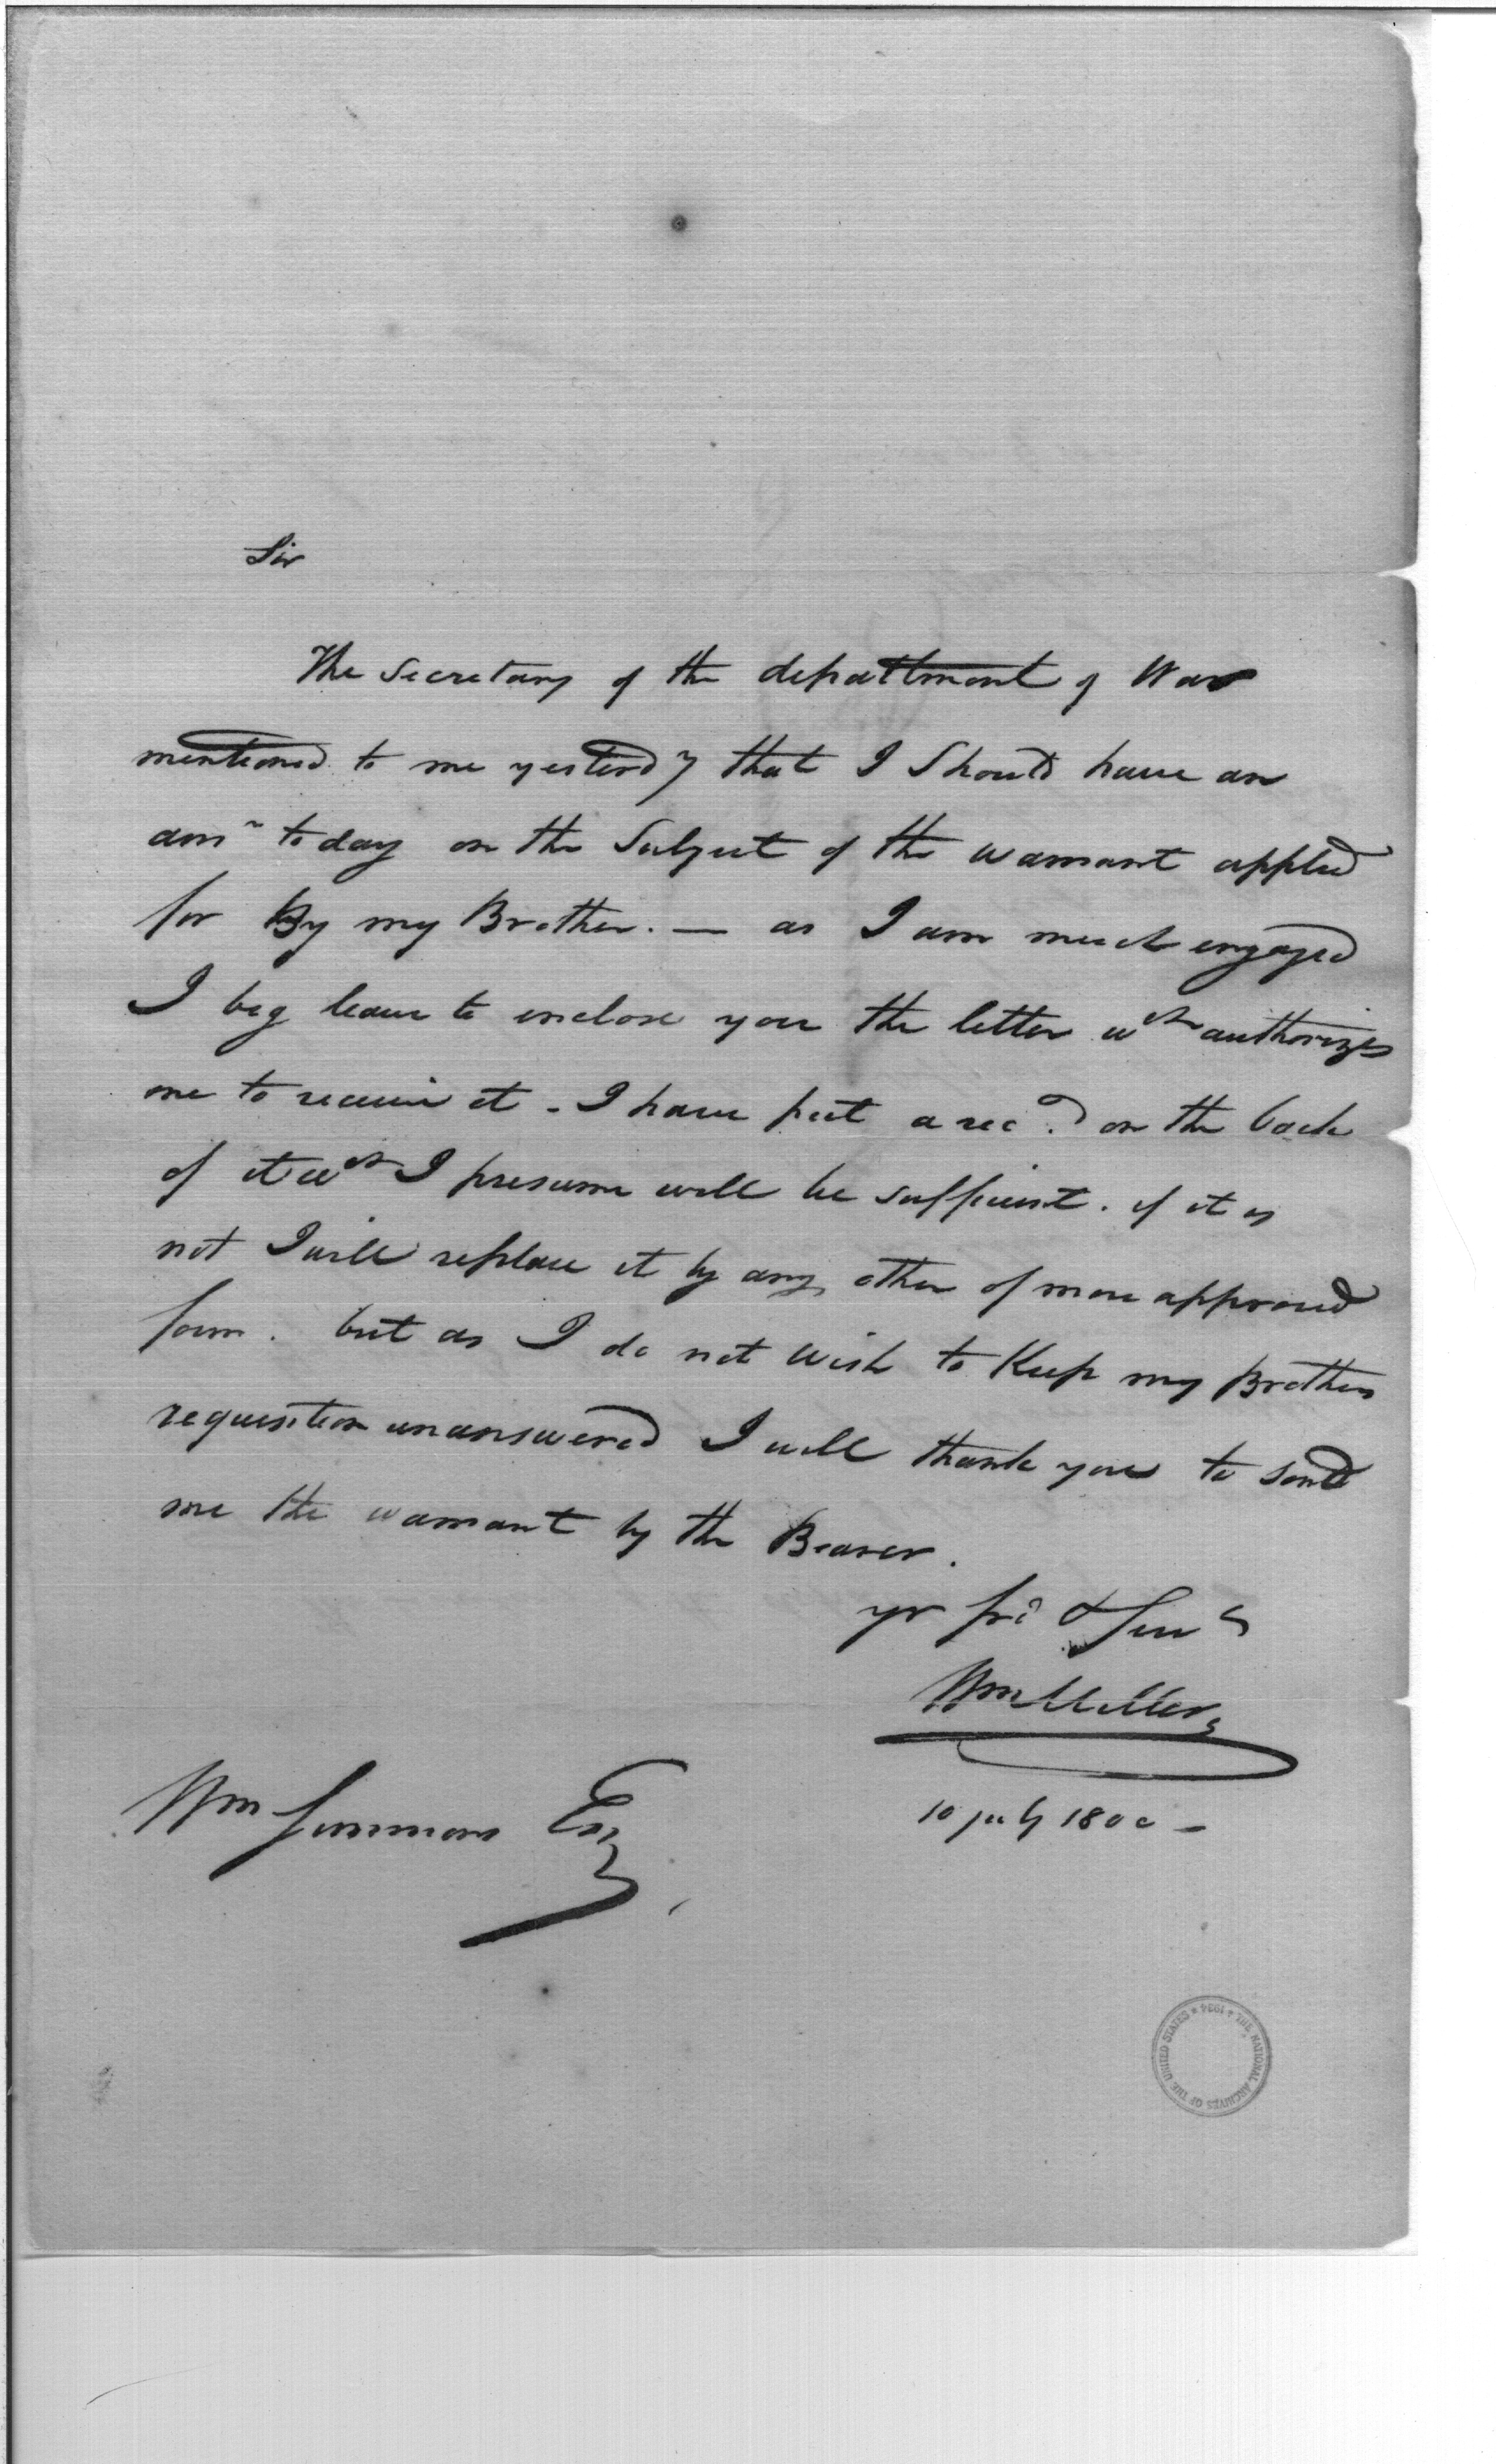 Sir
The Secretary of the departtment of War
mentioned to me yesterdy that I Should have an
ansr to day on the Subject of the warrant applied
for By my Brother. — as I am much engaged
I beg leave to enclose you the letter wch authorizes
me to receive it - I have put a recd. on the back
of it wch I presume will be sufficient. if it is
not I will replace it by any other of more approved
form. but as I do not wish to Keep my Brothers
requisition unanswered I will thank you to send
me the warrant by the Bearer.
yr frd & Servt
Wm Miller
10 july 1800 -
Wm Simmons Esq
THE NATIONAL ARCHIVES OF THE UNITED STATES * 1934 *